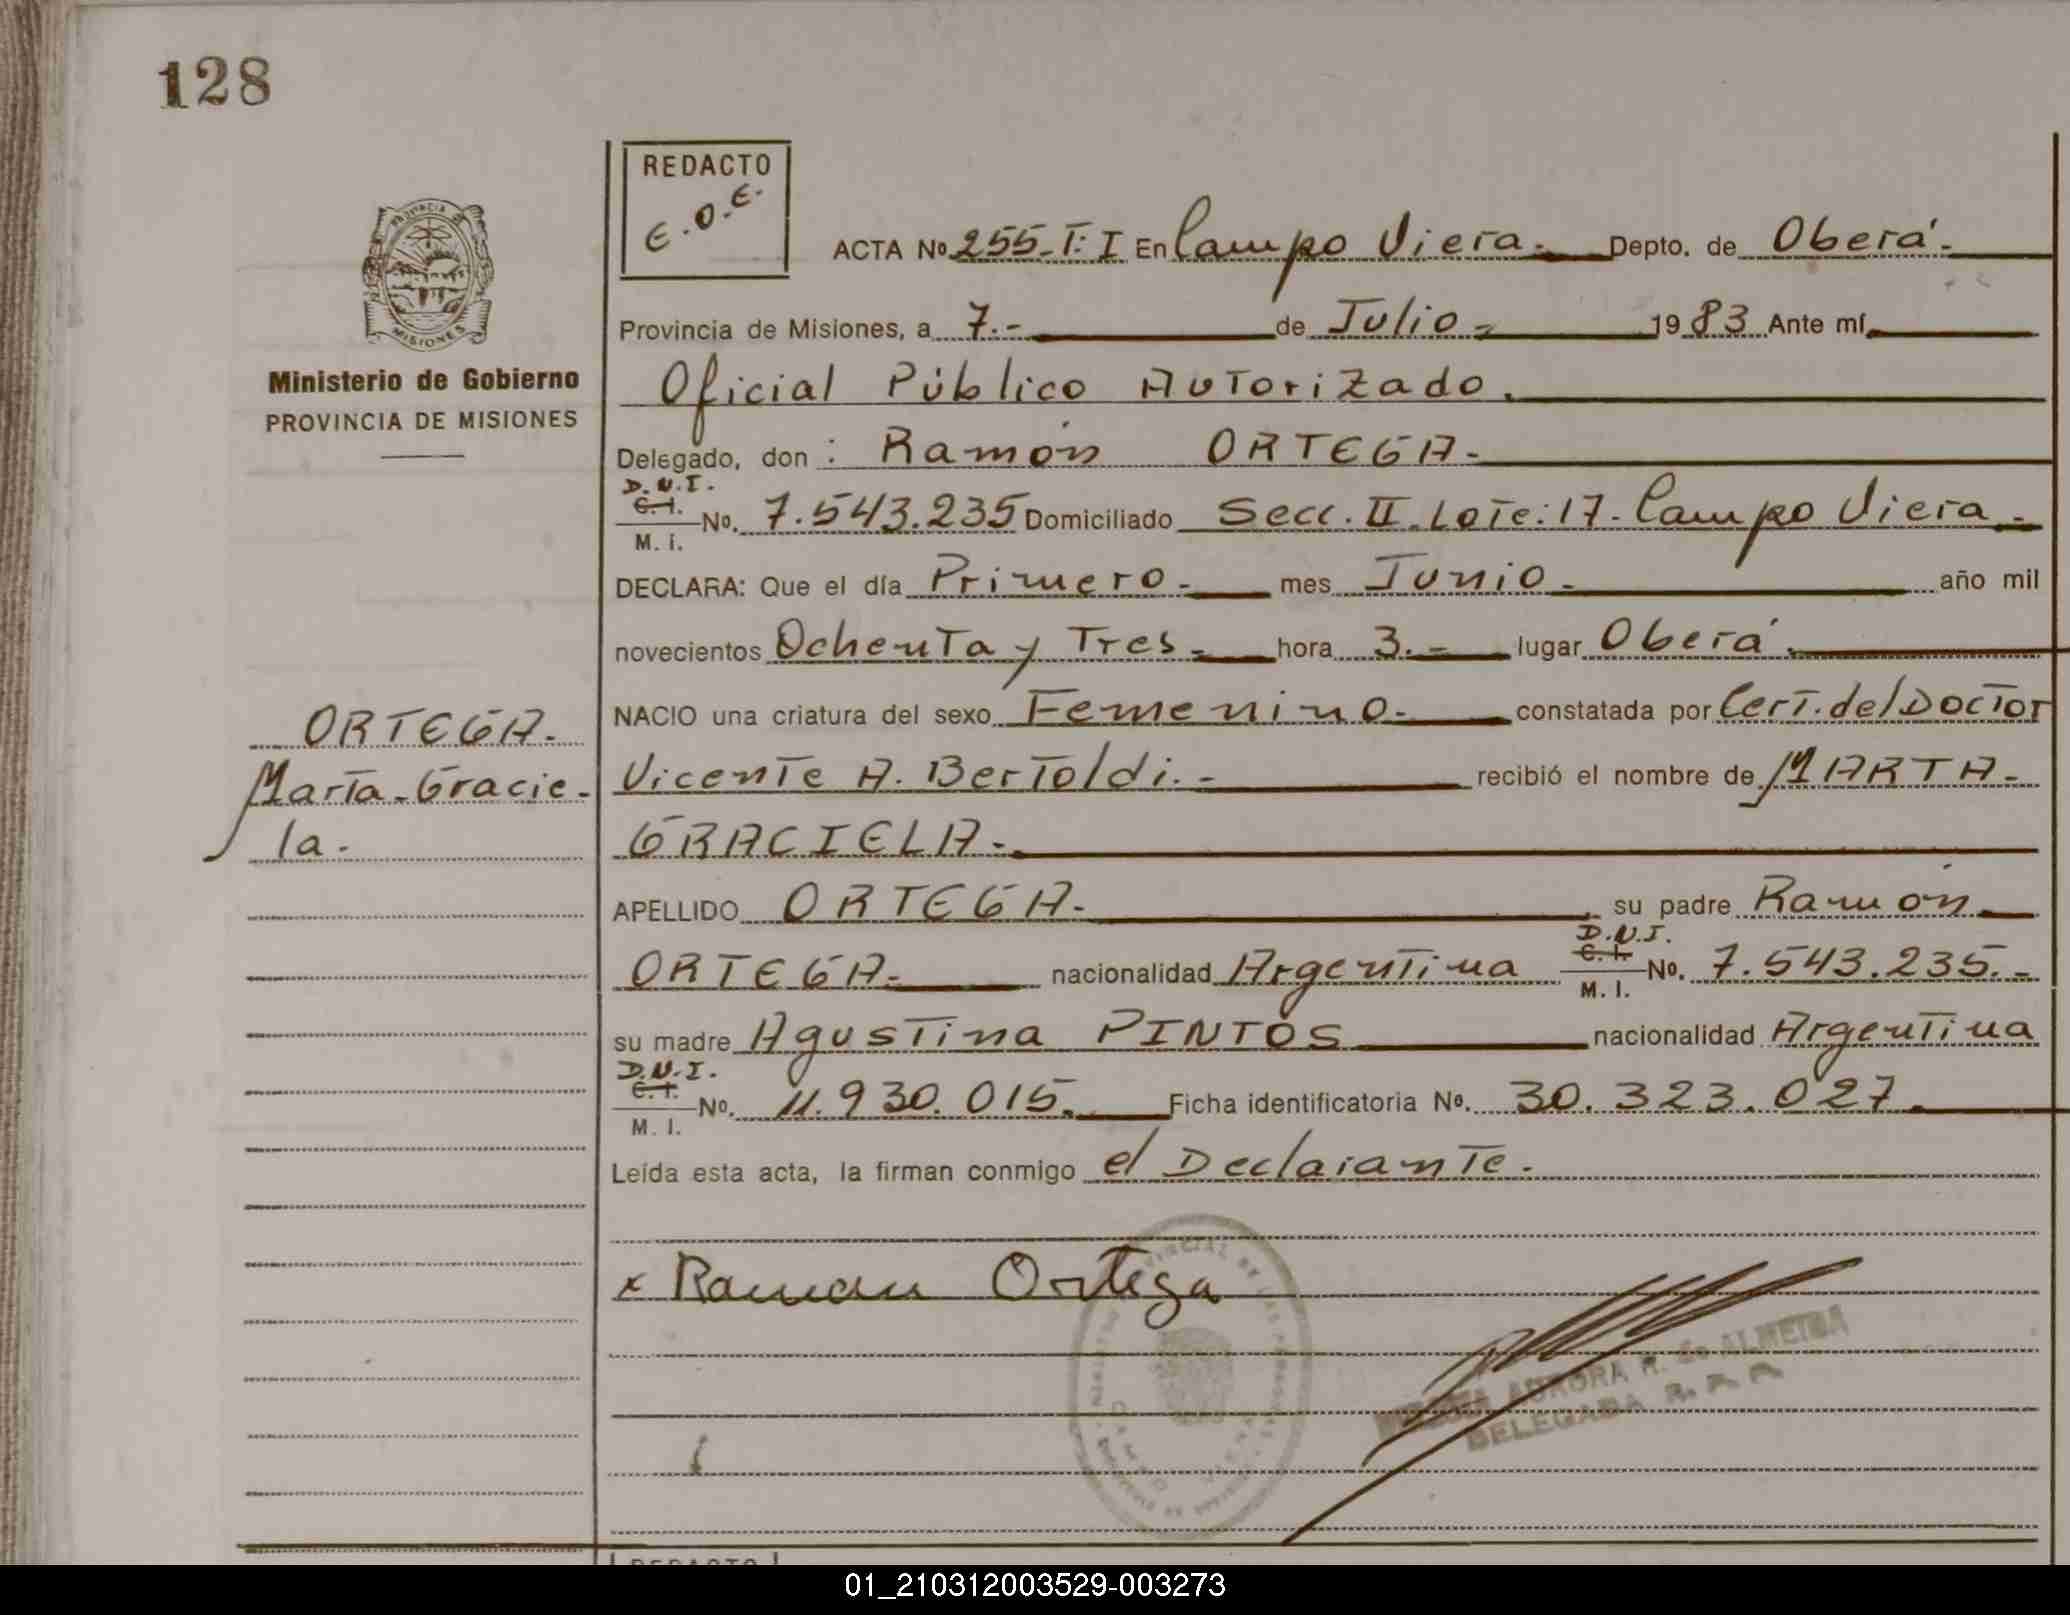 128
REDACTO
E.O.E.
PROVINCIA DE
MISIONES
Ministerio de Gobierno
PROVINCIA DE MISIONES
ACTA Nº 255-T:I En Campo Viera.- Depto. de Oberá.-
Provincia de Misiones, a 7.- de Julio.- 1983 Ante mí
Oficial Público Autorizado.
Delegado, don: Ramón ORTEGA.-
D.N.I.
C.I.
M. I. No. 7.543.235 Domiciliado Secc. II. Lote: 17. Campo Viera.-
DECLARA: Que el día Primero.- mes Junio.- año mil
novecientos Ochenta y Tres.- hora 3.- lugar Oberá.
NACIO una criatura del sexo Femenino.- constatada por Cert. del Doctor
Vicente A. Bertoldi.- recibió el nombre de MARTA-
GRACIELA.-
ORTEGA.
Marta-Gracie-
la.
APELLIDO ORTEGA.- su padre Ramón
ORTEGA.- nacionalidad Argentina D.N.I. C.I. M. I. No. 7.543.235.-
su madre Agustina PINTOS nacionalidad Argentina
D.N.I.
C.I.
M. I. No. 11.930.015. Ficha identificatoria Nº. 30.323.027.
Leída esta acta, la firman conmigo el Declarante.
x Raman Ortega
AURORA R. de ALMEIDA
DELEGADA
REDACTO
01_210312003529-003273